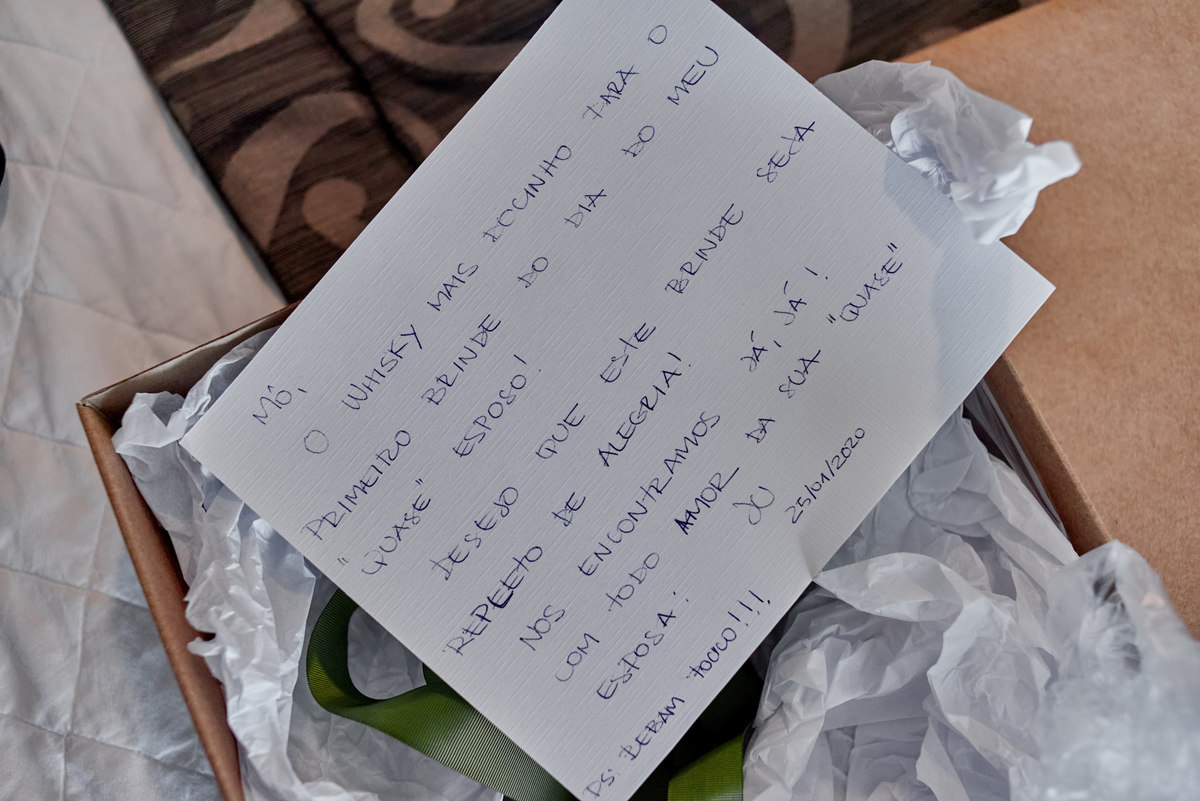 MÔ,
O WHISKY MAIS DOCINHO PARA O
PRIMEIRO BRINDE DO DIA DO MEU
"QUASE" ESPOSO!
DESEJO QUE ESTE BRINDE SEJA
REPLETO DE ALEGRIA!
NOS ENCONTRAMOS JÁ, JÁ!
COM TODO AMOR DA SUA "QUASE"
ESPOSA:
JU
25/01/2020
PS: BEBAM POUCO!!!